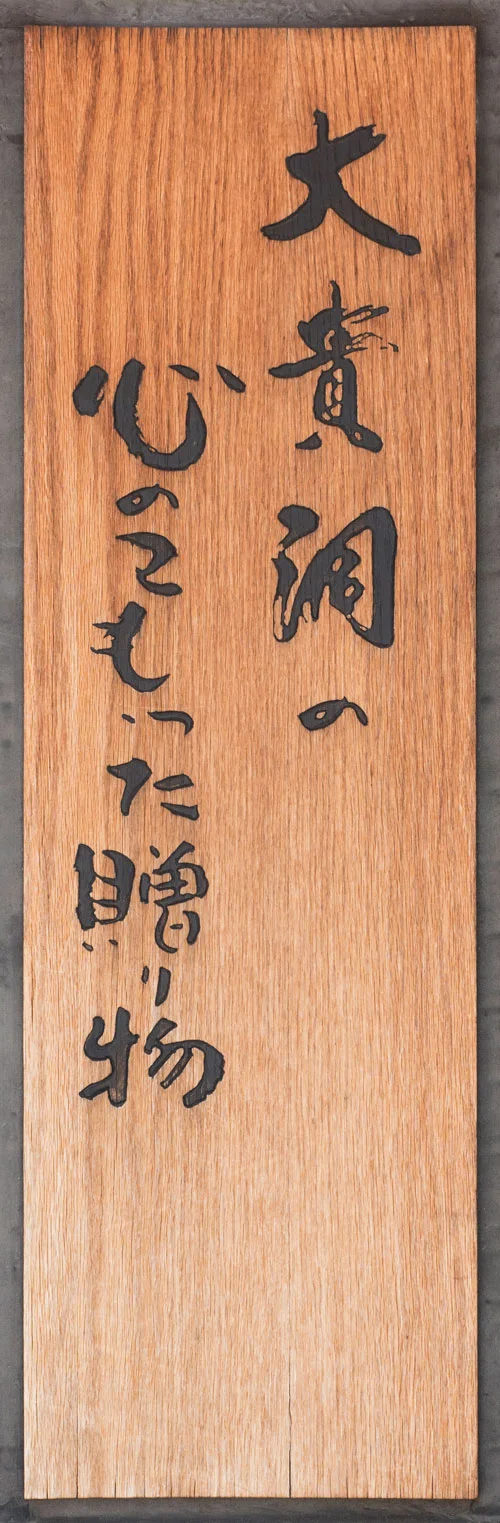 大貴の
心のこもった贈り物